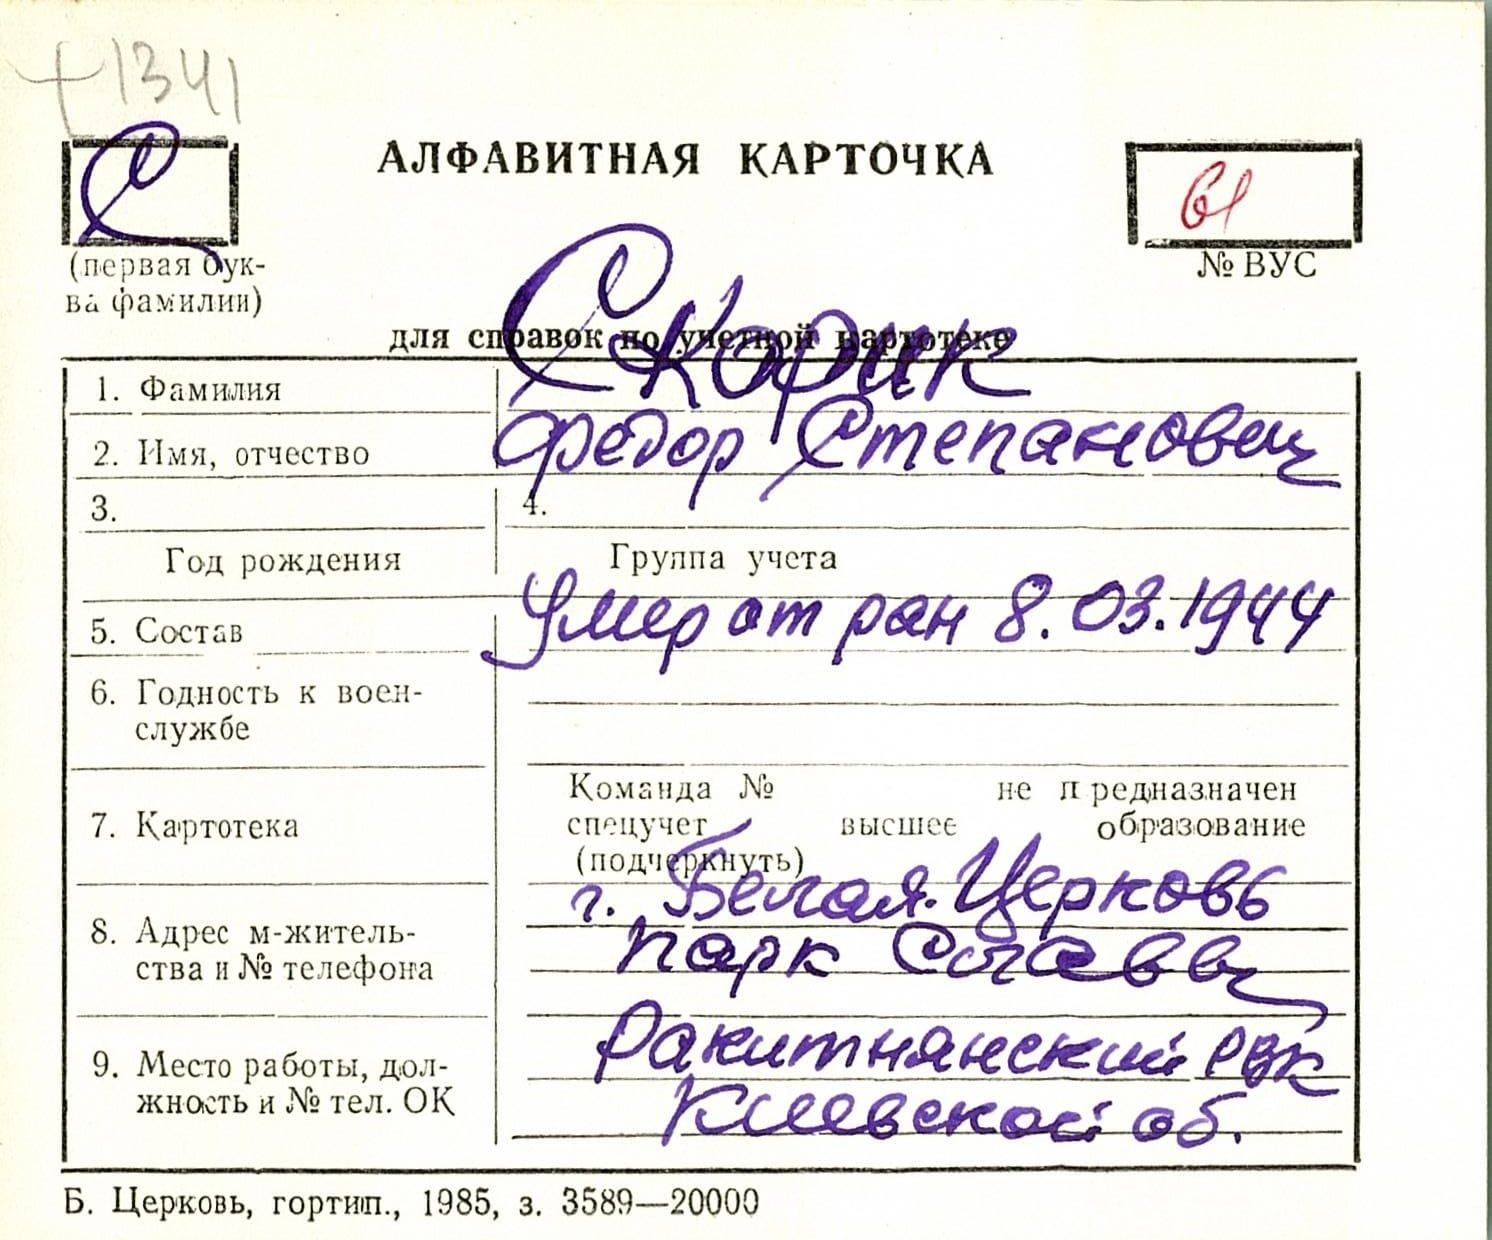 +1341
С
АЛФАВИТНАЯ КАРТОЧКА
61
(первая бук-
ва фамилии)
№ ВУС
для справок по учетной картотеке
1. Фамилия Скорик
2. Имя, отчество Федор Степанович
3. 4.
Год рождения Группа учета
5. Состав Умер от ран 8.03.1944
6. Годность к воен-
службе
Команда № не предназначен
7. Картотека спецучет высшее образование
(подчеркнуть)
г. Белая Церковь
8. Адрес м-житель- парк Славы
ства и № телефона
Ракитнянский РВК
9. Место работы, дол-
жность и № тел. ОК Киевской об.
Б. Церковь, гортип., 1985, з. 3589—20000